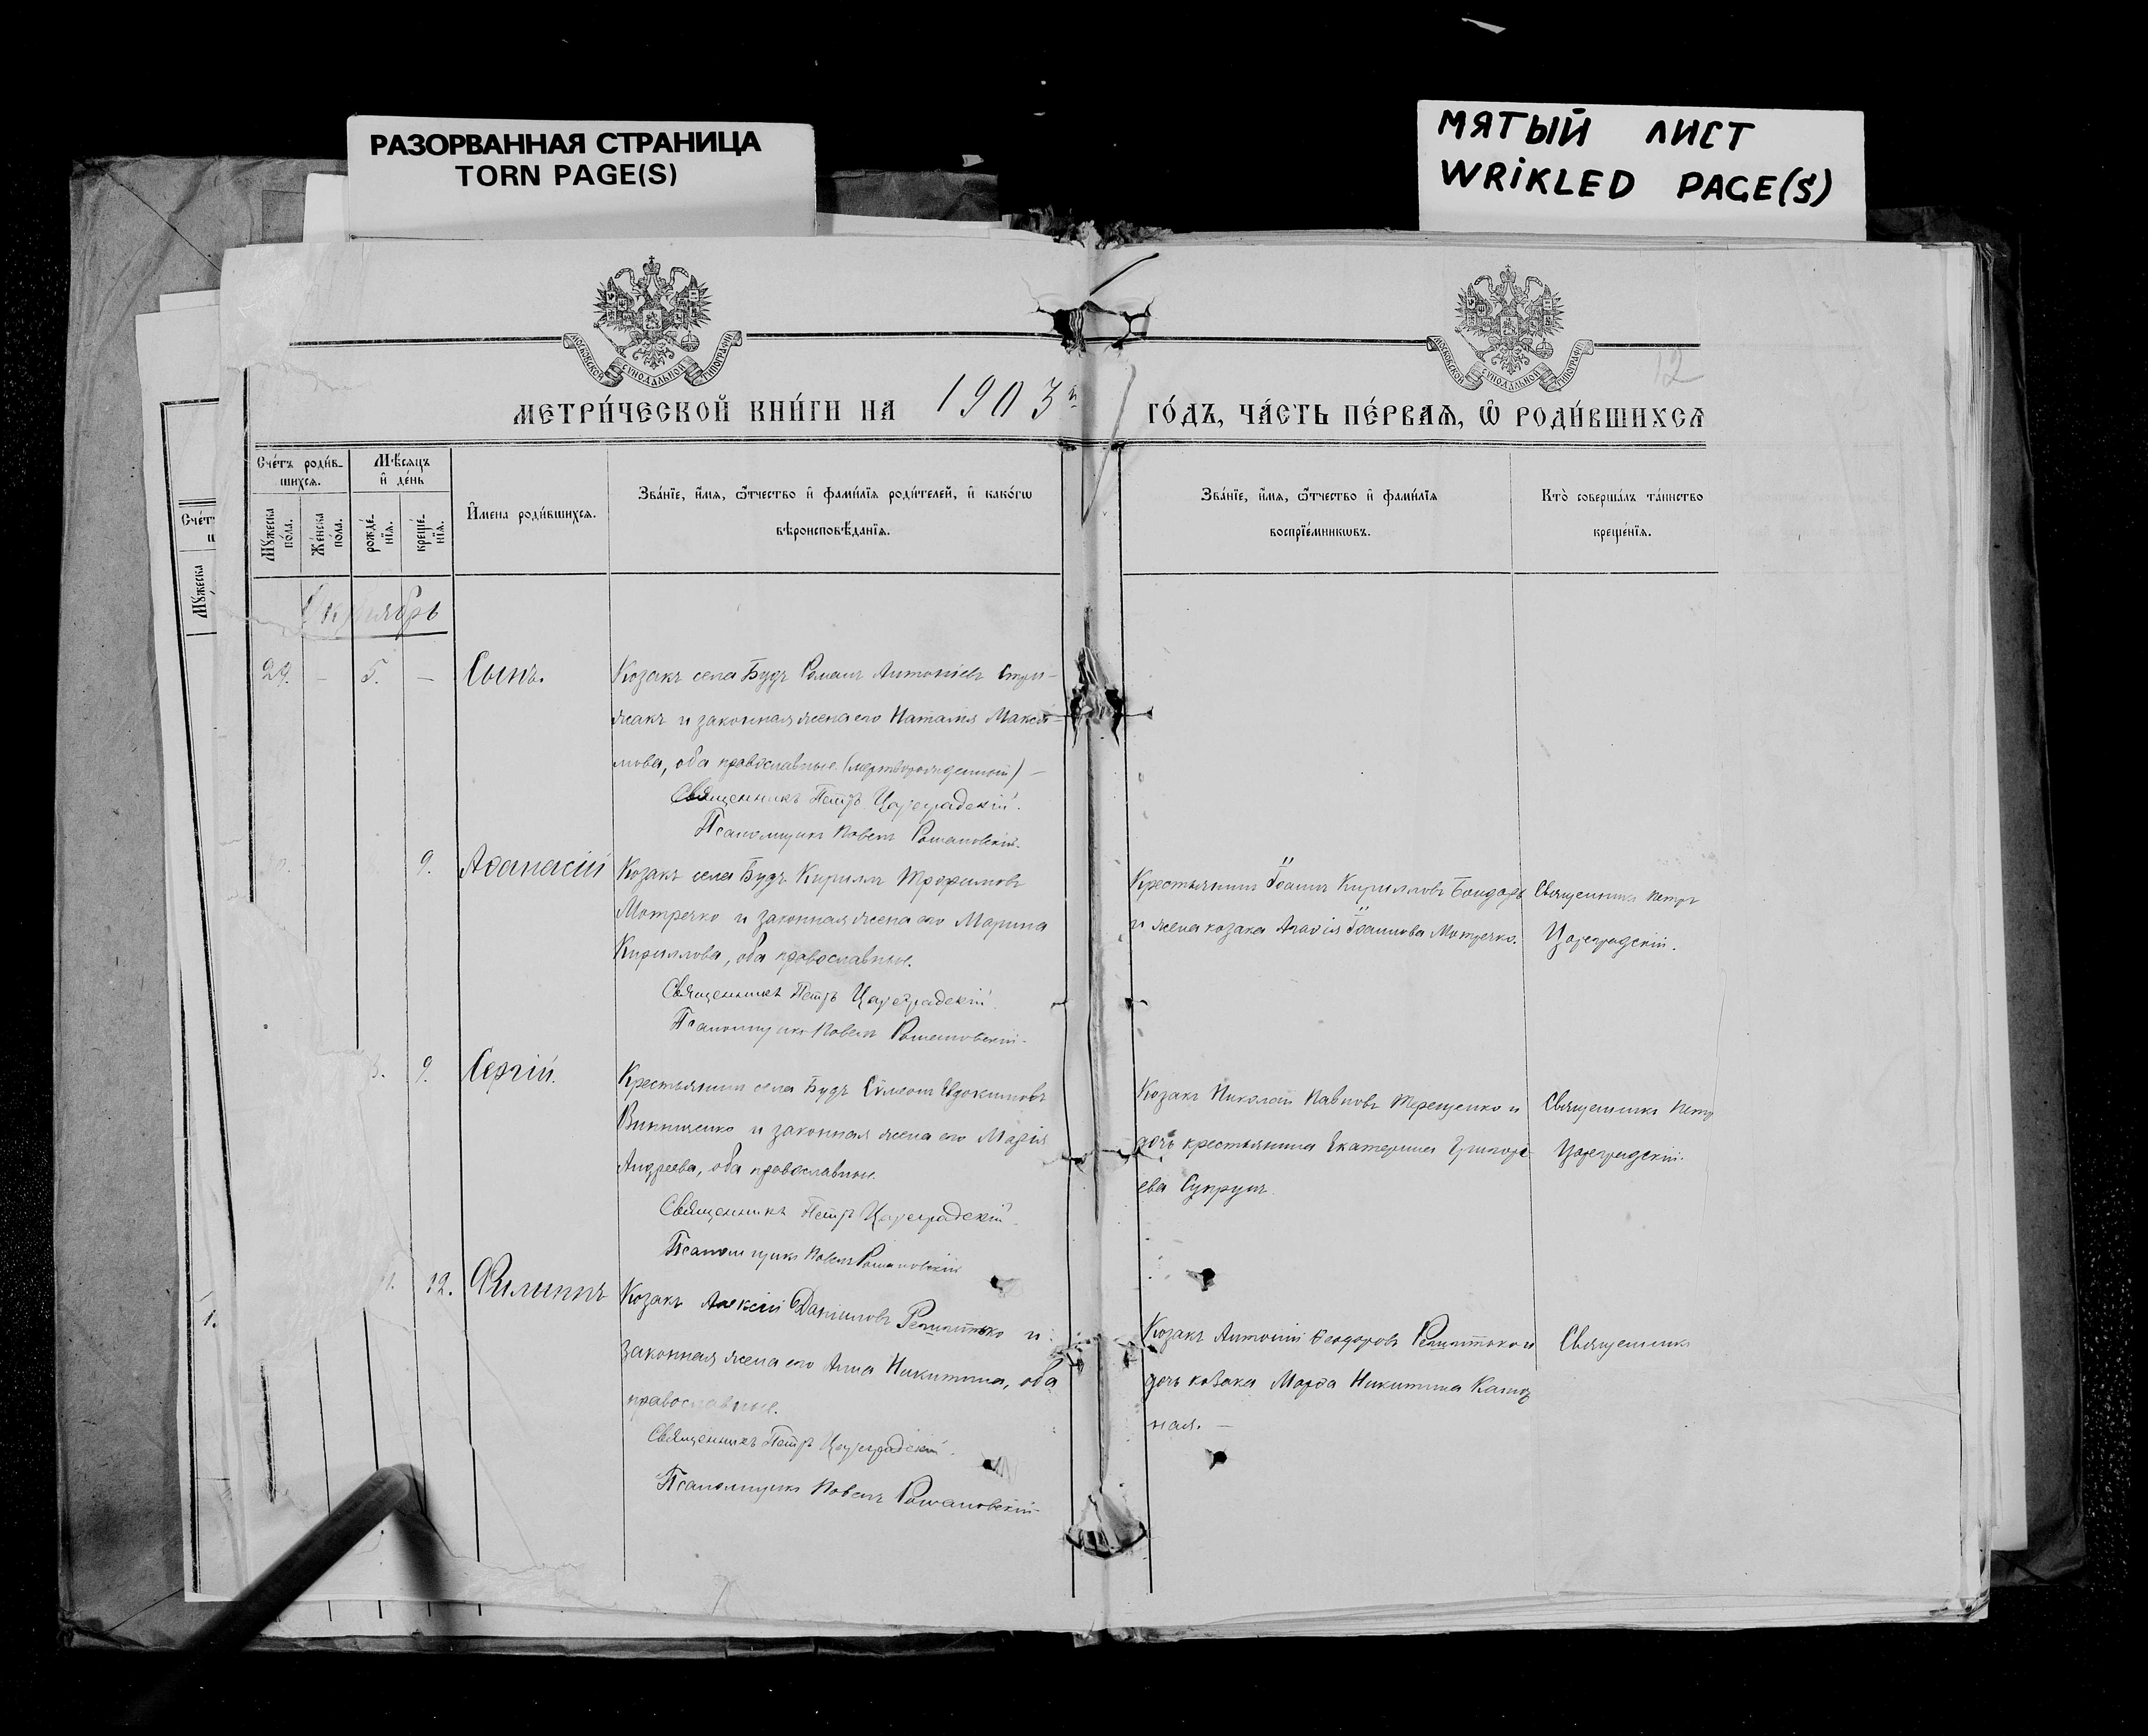 РАЗОРВАННАЯ СТРАНИЦА
TORN PAGE(S)
МЯТЫЙ ЛИСТ
WRiKLED PAGE(S)
МОСКОВСКОЙ СѴНОДАЛЬНОЙ ТИПОГРАФІИ
МОСКОВСКОЙ СѴНОДАЛЬНОЙ ТИПОГРАФІИ
12
МЕТРИ́ЧЕСКОЙ КНИ́ГИ НА 1903й ГО́ДЪ, ЧА́СТЬ ПЕ́РВАѦ, Ѡ҆ РОДИ́ВШИХСѦ
Сче́тъ роди́в-
шихсѧ.
Мꙋ́жеска
по́ла.
Же́нска
по́ла.
Мѣ́сѧцъ
и҆ де́нь
рожде́-
нїѧ.
креще́-
нїѧ.
И҆мена роди́вшихсѧ.
Зва́нїе, и҆́мѧ, ѻ҆́тчество и҆ фами́лїѧ роди́телей, и҆ како́гѡ
вѣроисповѣ́данїѧ.
Зва́нїе, и҆́мѧ, ѻ҆́тчество и҆ фами́лїѧ
воспрїе́мникѡвъ.
Кто̀ соверша́лъ та́инство
креще́нїѧ.
Сче́т
Мꙋ́жеска
Октябрь
29. – 5. – Сынъ.
Козакъ села Будъ Романъ Антоніевъ
и законная жена его Наталія Макси-
мова, оба православные (мертворожденный) –
Священникъ Петръ Цареградскій.
Псаломщикъ Павелъ Романовскій.
9. Аѳанасій
Козакъ села Будъ Кириллъ Трофимовъ
Мотречко и законная жена его Марина
Кириллова, оба православные.
Священникъ Петръ Цареградскій.
Псаломщикъ Павелъ Романовскій.
Крестьянинъ Іоаннъ Кирилловъ Бондарь
и жена козака Агафія Іоаннова Мотречко.
Священникъ Петръ
Цареградскій.
9. Сергій.
Крестьянинъ села Будъ Сѵмеонъ Евдокимовъ
Винниченко и законная жена его Марія
Андреева, оба православные.
Священникъ Петръ Цареградскій.
Псаломщикъ Павелъ Романовскій
Козакъ Николай Павловъ Терещенко и
дочь крестьянина Екатерина Григорі-
ева Супрунъ.
Священникъ Петр
Цареградскій.
12. Филиппъ
Козакъ Алексій Даніиловъ и
законная жена его Анна Никитина, оба
православные.
Священникъ Петръ Цареградскій.
Псаломщикъ Павелъ Романовскій
Козакъ Антоній Феодоровъ
дочь козака Марфа Никитина
ная. –
Священникъ
1.